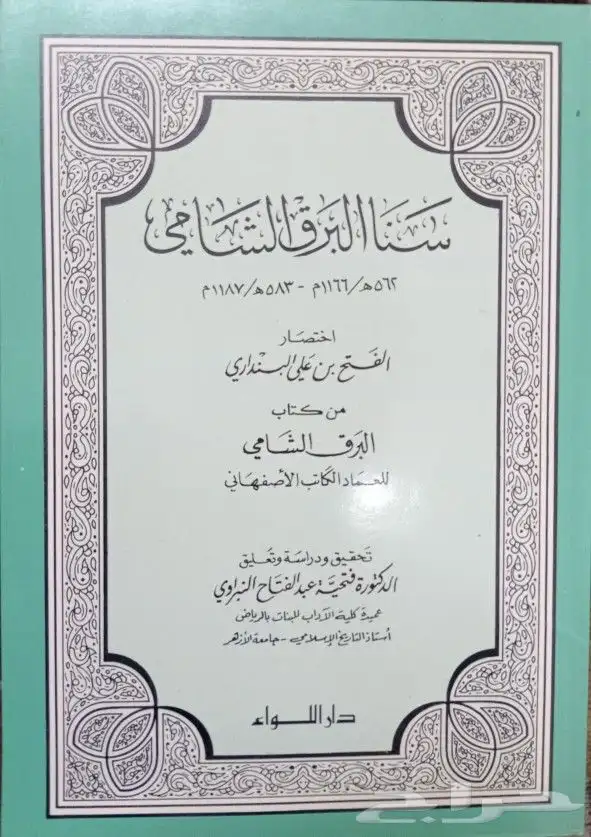 سَنَا البَرق الشَامي
٥٦٢هـ/١١٦٦م - ٥٨٣هـ/١١٨٧م
اختصار
الفتح بن علي البنداري
من كتاب
البرق الشامي
للعماد الكاتب الأصفهاني
تحقيق ودراسة وتعليق
الدكتورة فتحية عبد الفتاح النبراوي
عميدة كلية الآداب للبنات بالرياض
أستاذ التاريخ الإسلامي - جامعة الأزهر
دار اللواء
حراج